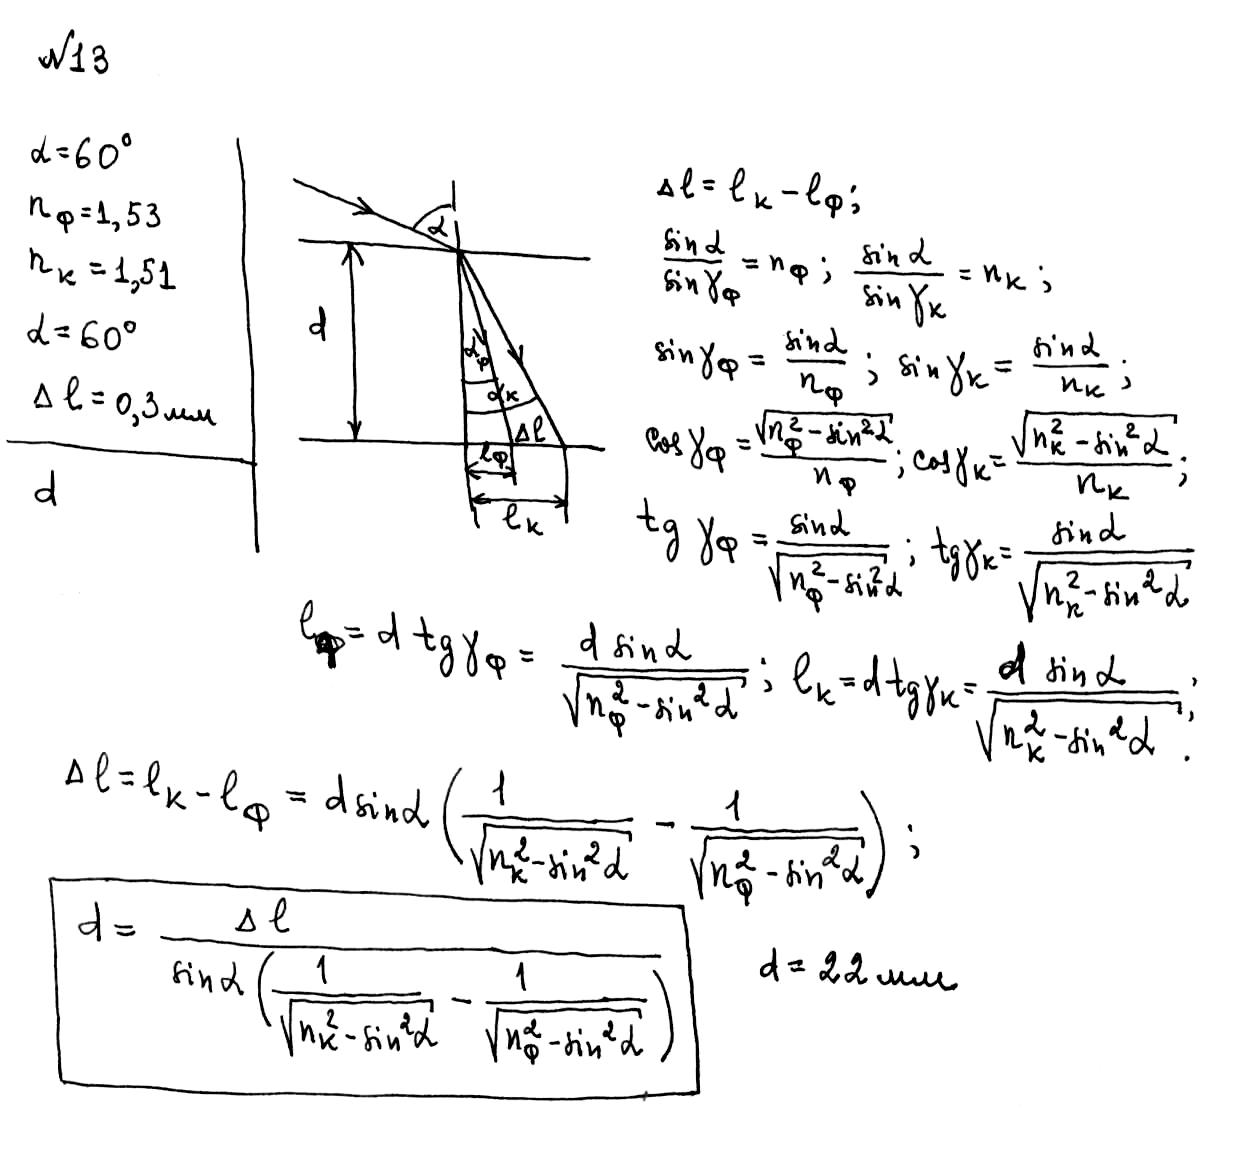 №13
α=60°
nф=1,53
nк=1,51
α=60°
Δl=0,3мм
d
α
d
αф
αк
Δl
lф
lк
Δl=lк-lф;
sinα/sinγф = nф; sinα/sinγк = nк;
sinγф = sinα/nф; sinγк = sinα/nк;
cosγф = √(nф²-sin²α)/nф; cosγк = √(nк²-sin²α)/nк;
tgγф = sinα/√(nф²-sin²α); tgγк = sinα/√(nк²-sin²α)
lф = d tgγф = d sinα/√(nф²-sin²α); lк = d tgγк = d sinα/√(nк²-sin²α);
Δl=lк-lф = d sinα (1/√(nк²-sin²α) - 1/√(nф²-sin²α));
d = Δl/(sinα (1/√(nк²-sin²α) - 1/√(nф²-sin²α)))
d = 22мм